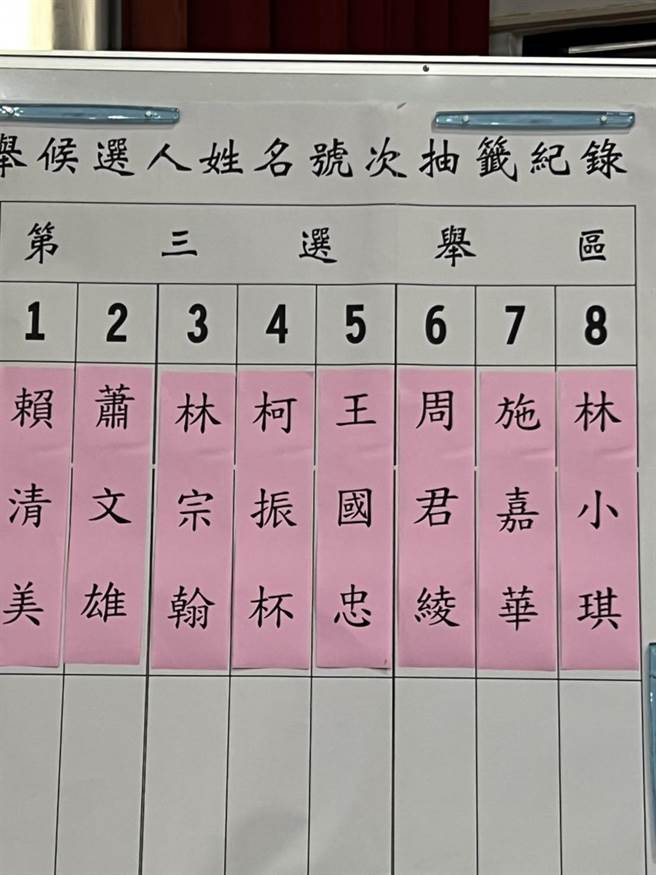 舉候選人姓名號次抽籤紀錄
第三選舉區
1 2 3 4 5 6 7 8
賴清美
蕭文雄
林宗翰
柯振杯
王國忠
周君綾
施嘉華
林小琪